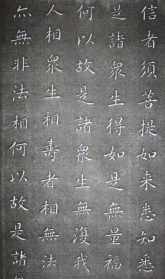 信者須菩提如来悉知悉
是諸衆生得如是無量福
何以故是諸衆生無復我
人相衆生相壽者相無法
亦無非法相何以故是諸